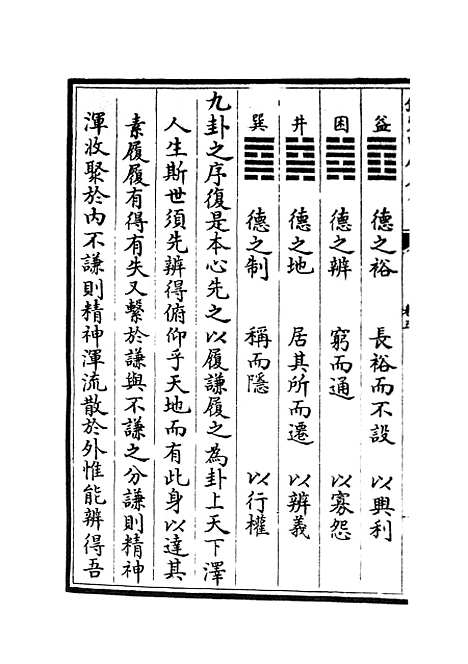 益 德之裕 長裕而不設 以興利
困 德之辨 窮而通 以寡怨
井 德之地 居其所而遷 以辨義
巽 德之制 稱而隱 以行權
九卦之序復是本心先之以履謙履之為卦上天下澤
人生斯世須先辨得俯仰乎天地而有此身以達其
素履履有得有失又繫於謙與不謙之分謙則精神
渾收聚於內不謙則精神渾流散於外惟能辨得吾